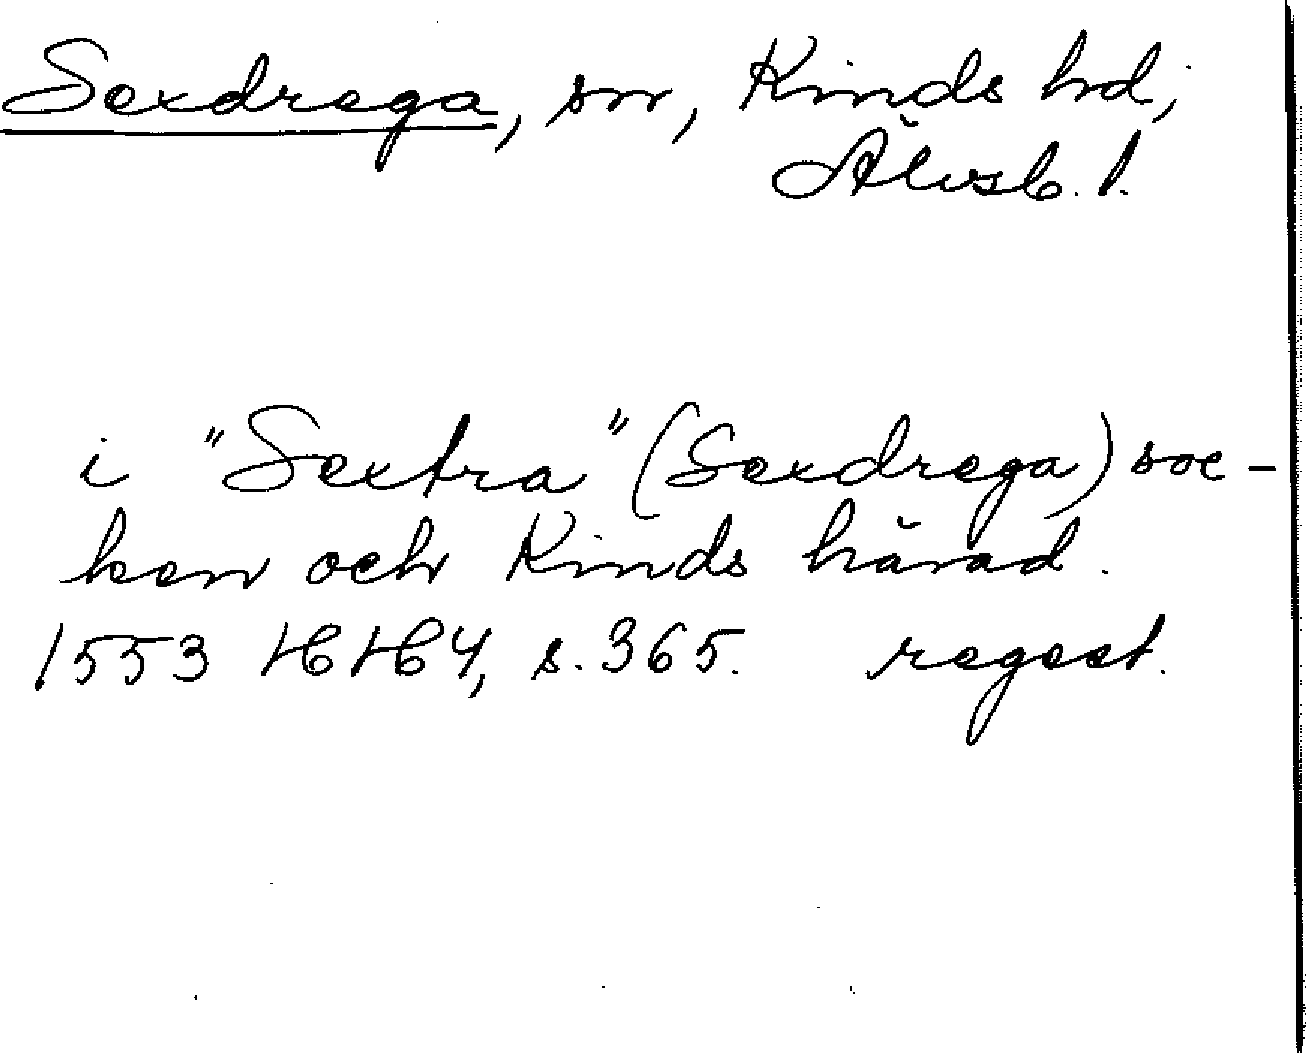 Sexdrega, sn, Kinds hd,
Älvsb. l.
i "Sextra" (Sexdrega) soc-
ken och Kinds härad.
1553 HH 4, s. 365. regest.